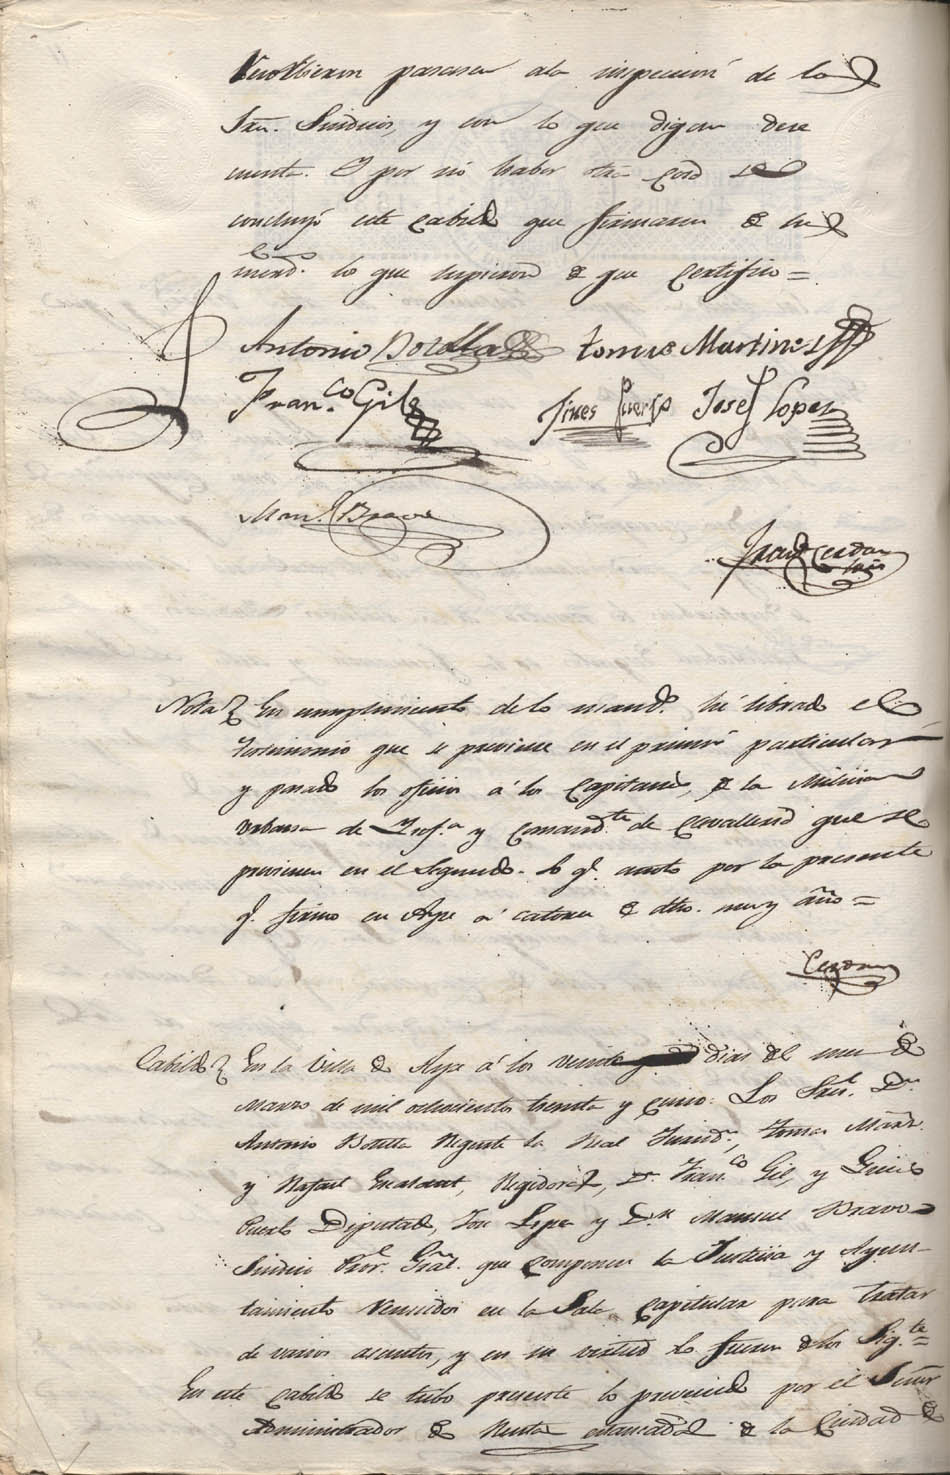 resolvieron pasasen ala inspeccion de los
Sres. Sindicos, y con lo que digan dese
cuenta. Y por nó haber otra cosa se
concluyó este Cabildo que firmaron de sus
mercds. lo que supieron de que Certifico =
Antonio Botella tomas Martines
Franco. Gil Jines Cuerpo Josef Lopez
Manl. Bravo
Franco Cerdan
Nota En cumplimiento de lo mando. hé librado el
testimonio que se previene en el primer particular
y pasado los oficios á los Capitanes, de la Milicia
Urbana de Ynfa. y Comandte. de Cavalleria que se
previenen en el Segundo. Lo q. anoto por la presente
q. firmo en Aspe á catorce de dho. mes y año =
Cerdan
Cabildo En la Villa de Aspe á los veinte dias del mes de
Marzo de mil ochocientos treinta y cinco: Los Sres. Dn.
Antonio Botella Regente la Real Jurisdn., Tomas Martz.
y Rafael, Regidores, Dn. Franco. Gil, y Gines
Diputados, Jose Lopez y Dn. Manuel Bravo
Sindico Pror. Gral. que componen la Justicia y Ayun-
tamiento reunidos en la Sala Capitular para tratar
de varios asuntos, y en su virtud lo fueron de los Sigtes. =
En este Cabildo se tubo presente lo prevenido por el Señor
Administrador de Rentas estancadas de la Ciudad de